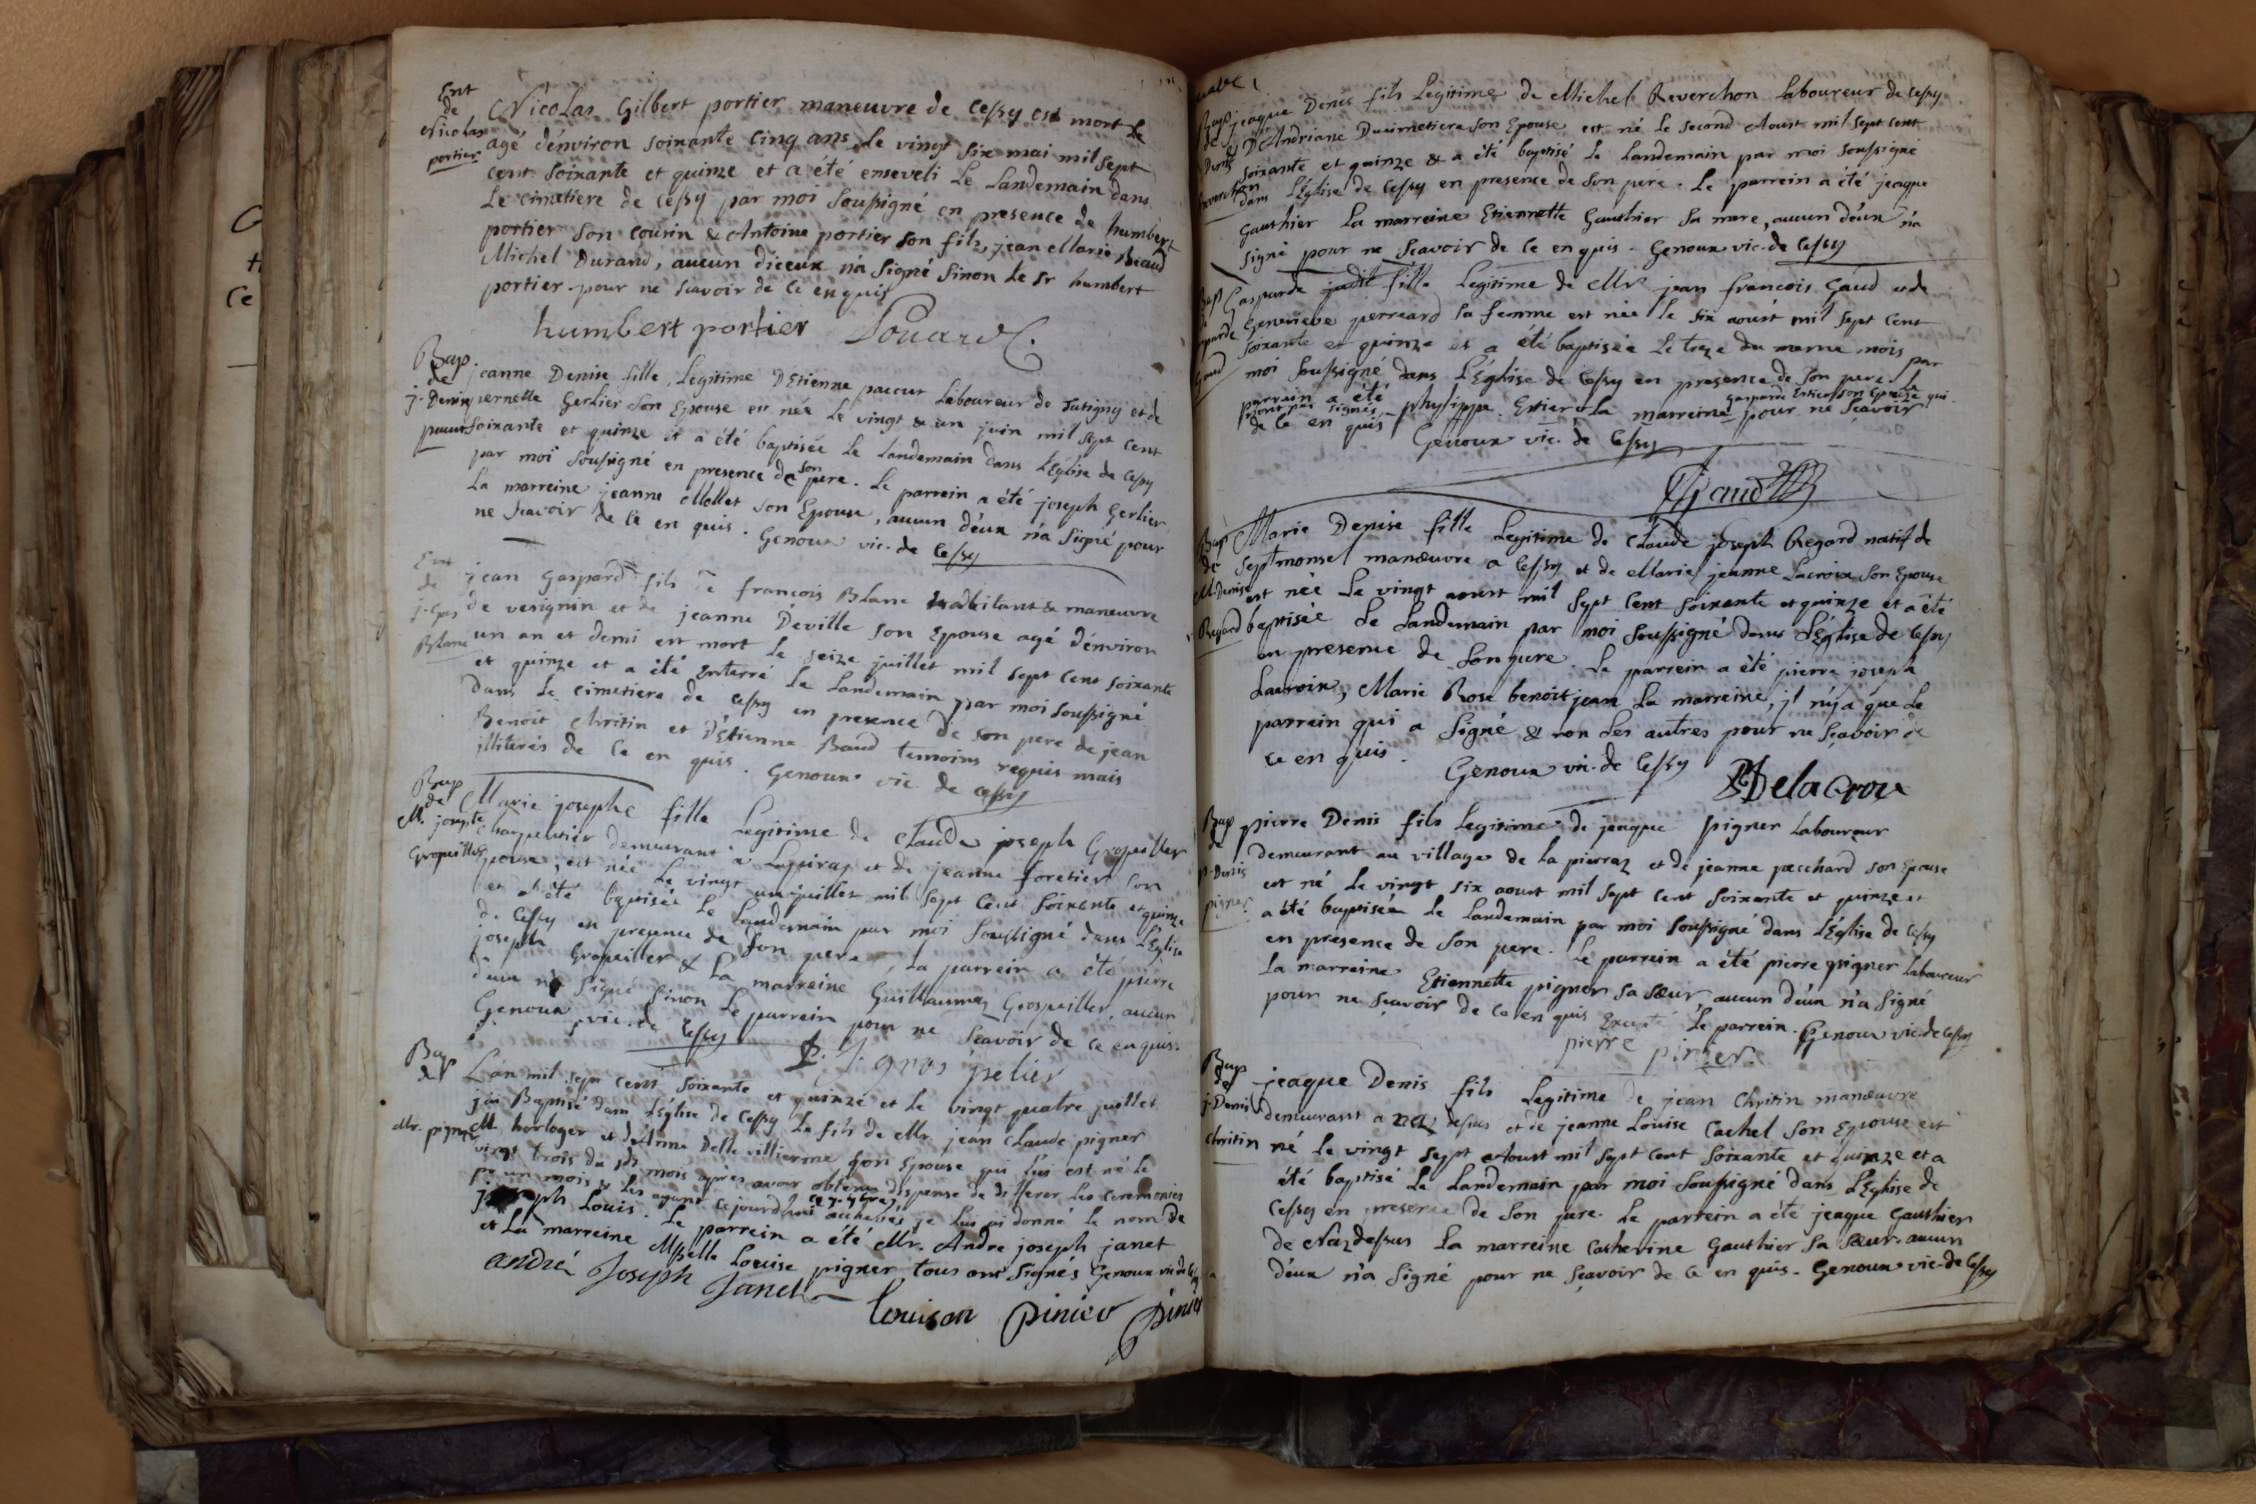 Ent
de
Nicolas
portier
Nicolas Gilbert portier manœuvre de Cessy est mort le
agé d'environ soixante cinq ans, le vingt six mai mil sept
cent soixante et quinze et a été enseveli le landemain dans
le cimetiere de cessy par moi soussigné en presence de humbert
portier son cousin & Antoine portier son fils, jean Marie Beaud
Michel Durand, aucun diceux n'a signé sinon le sr humbert
portier pour ne scavoir de ce enquis
humbert portier
Bap.
de
j. Denise
jeanne Denise fille Legitime D'Etienne laboureur de Tutigny et de
pernette Gerlier son Epouse est née le vingt & un juin mil sept cent
soixante et quinze et a été baptisée le landemain dans l'Eglise de Cessy
par moi soussigné en presence de son pere. le parrein a été joseph Gerlier
la marreine jeanne Mollet son Epouse, aucun d'eux n'a signé pour
ne scavoir de ce en quis. Genoux vic. de Cessy
Ent
de
j. Gas
Blanc
jean Gaspard fils de francois Blanc habitant & manœuvre
de vesignin et de jeanne Deville son Epouse agé d'environ
un an et demi est mort le seize juillet mil sept cent soixante
et quinze et a été Enterré le landemain par moi soussigné
dans le cimetiere de cessy en presence de son pere de jean
Benoit Christin et d'Etienne Baud temoins requis mais
illiterés de ce en quis. Genoux vic de cessy
Bap
de
M. josephe
Gropeiller
Marie josephe fille Legitime de Claude joseph Gropeiller
charpentier demeurant a et de jeanne foretier son
epouse, est née le vingt un juillet mil sept cent soixante et quinze
et a été baptisée le landemain par moi soussigné dans l'Eglise
de Cessy en presence de son pere, le parrein a été pierre
joseph Gropeiller & la marreine Guillaumaz Grospeiller, aucun
d'eux n'a signé sinon le parrein pour ne scavoir de ce en quis.
Genoux vic. de Cessy
Bap
de
Mr. pigner
L'an mil sept cent soixante et quinze et le vingt quatre juillet
j'ai Baptisé dans l'Eglise de Cessy le fils de Mr. jean Claude pigner
M. horloger et d'Anne Delle villierme son Epouse qui lui est né le
vingt trois du dt mois après avoir obtenu dispense de differer les ceremonies
p. un mois & les ayant cejourd'hui achevées je lui ai donné le nom de
joseph Louis. Le parrein a été Mr. André joseph janet
et la marreine Mselle Louise pigner tous ont signés Genoux vic de Cessy
andré Joseph Janet
louison Pinier Pinier
Bap
de
j. Denis
Reverchon
jeaque Denis fils Legitime de Michel Reverchon laboureur de Cessy
et D'Andriane Dusimetiere son Epouse est né le second Aoust mil sept cent
soixante et quinze & a été baptisé le landemain par moi soussigné
dans l'Eglise de Cessy en presence de son pere. Le parrein a été jeaque
Gauthier la marreine Etiennette Gauthier sa mere, aucun d'eux n'a
signé pour ne scavoir de ce en quis. Genoux vic. de Cessy
Bap
de
Gasparde
Gaud
Gasparde judit fille Legitime de Mr jean francois Gaud et de
Genevieve perreard sa femme est née le six aoust mil sept cent
soixante et quinze et a été baptisée le treze du meme mois par
moi soussigné dans l'Eglise de Cessy en presence de son pere Le
parrein a été phylippe Estier & la marreine Gasparde Estier son Epouse qui
n'ont pas signés pour ne scavoir
de ce en quis
Genoux vic. de Cessy
Gaud
Bap
de
M. Denise
Regard
Marie Denise fille Legitime de Claude joseph Regard natif de
Septmonsel manœuvre a Cessy et de Marie jeanne Lacroix son Epouse
est née le vingt aoust mil sept cent soixante et quinze et a été
baptisée le landemain par moi soussigné dans l'Eglise de Cessy
en presence de son pere. le parrein a été pierre joseph
Lacroix, Marie Rose benoit jean la marreine, jl n'y a que le
parrein qui a signé & non les autres pour ne scavoir de
ce en quis. Genoux vic. de Cessy
Delacroix
Bap
de
p. Denis
pigner
pierre Denis fils Legitime de jeaque pigner laboureur
demeurant au village de la pierraz et de jeanne pecchard son Epouse
est né le vingt six aoust mil sept cent soixante et quinze et
a été baptisée le landemain par moi soussigné dans l'Eglise de Cessy
en presence de son pere. le parrein a été pierre pigner laboureur
la marreine Etiennette pigner sa sœur, aucun d'eux n'a signé
pour ne scavoir de ce en quis Excepté le parrein. Genoux vic. de Cessy
pierre
Bap
de
j. Denis
Christin
jeaque Denis fils Legitime de jean Christin manœuvre
demeurant a naz dessus et de jeanne Louise Cachel son Epouse est
né le vingt sept Aoust mil sept cent soixante et quinze et a
été baptisé le landemain par moi soussigné dans l'Eglise de
Cessy en presence de son pere. le parrein a été jeaque Gauthier
de Naz dessus la marreine Catherine Gauthier sa sœur. aucun
d'eux n'a signé pour ne scavoir de ce en quis. Genoux vic. de Cessy